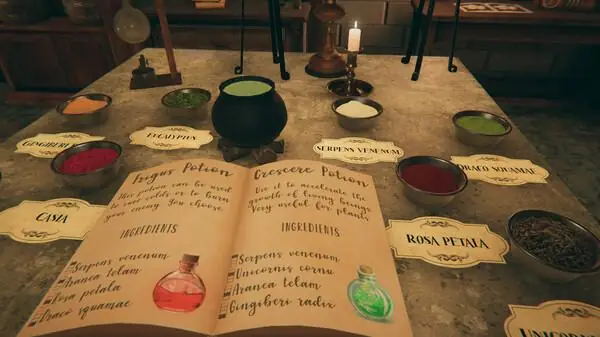 GINGIBERI
EUCALYPTUS
SERPENS VENENUM
DRACO SQUAMAE
CASIA
ROSA PETALA
UNICORN
Frigus Potion
This potion can be used
to cure colds or to harm
your enemy. You choose
INGREDIENTS
Serpens venenum
Aranea telam
Rosa petala
Draco squamae
Crescere Potion
Use it to accelerate the
growth of living beings
Very useful for plants
INGREDIENTS
Serpens venenum
Unicornis cornu
Aranea telam
Gingiberi radix